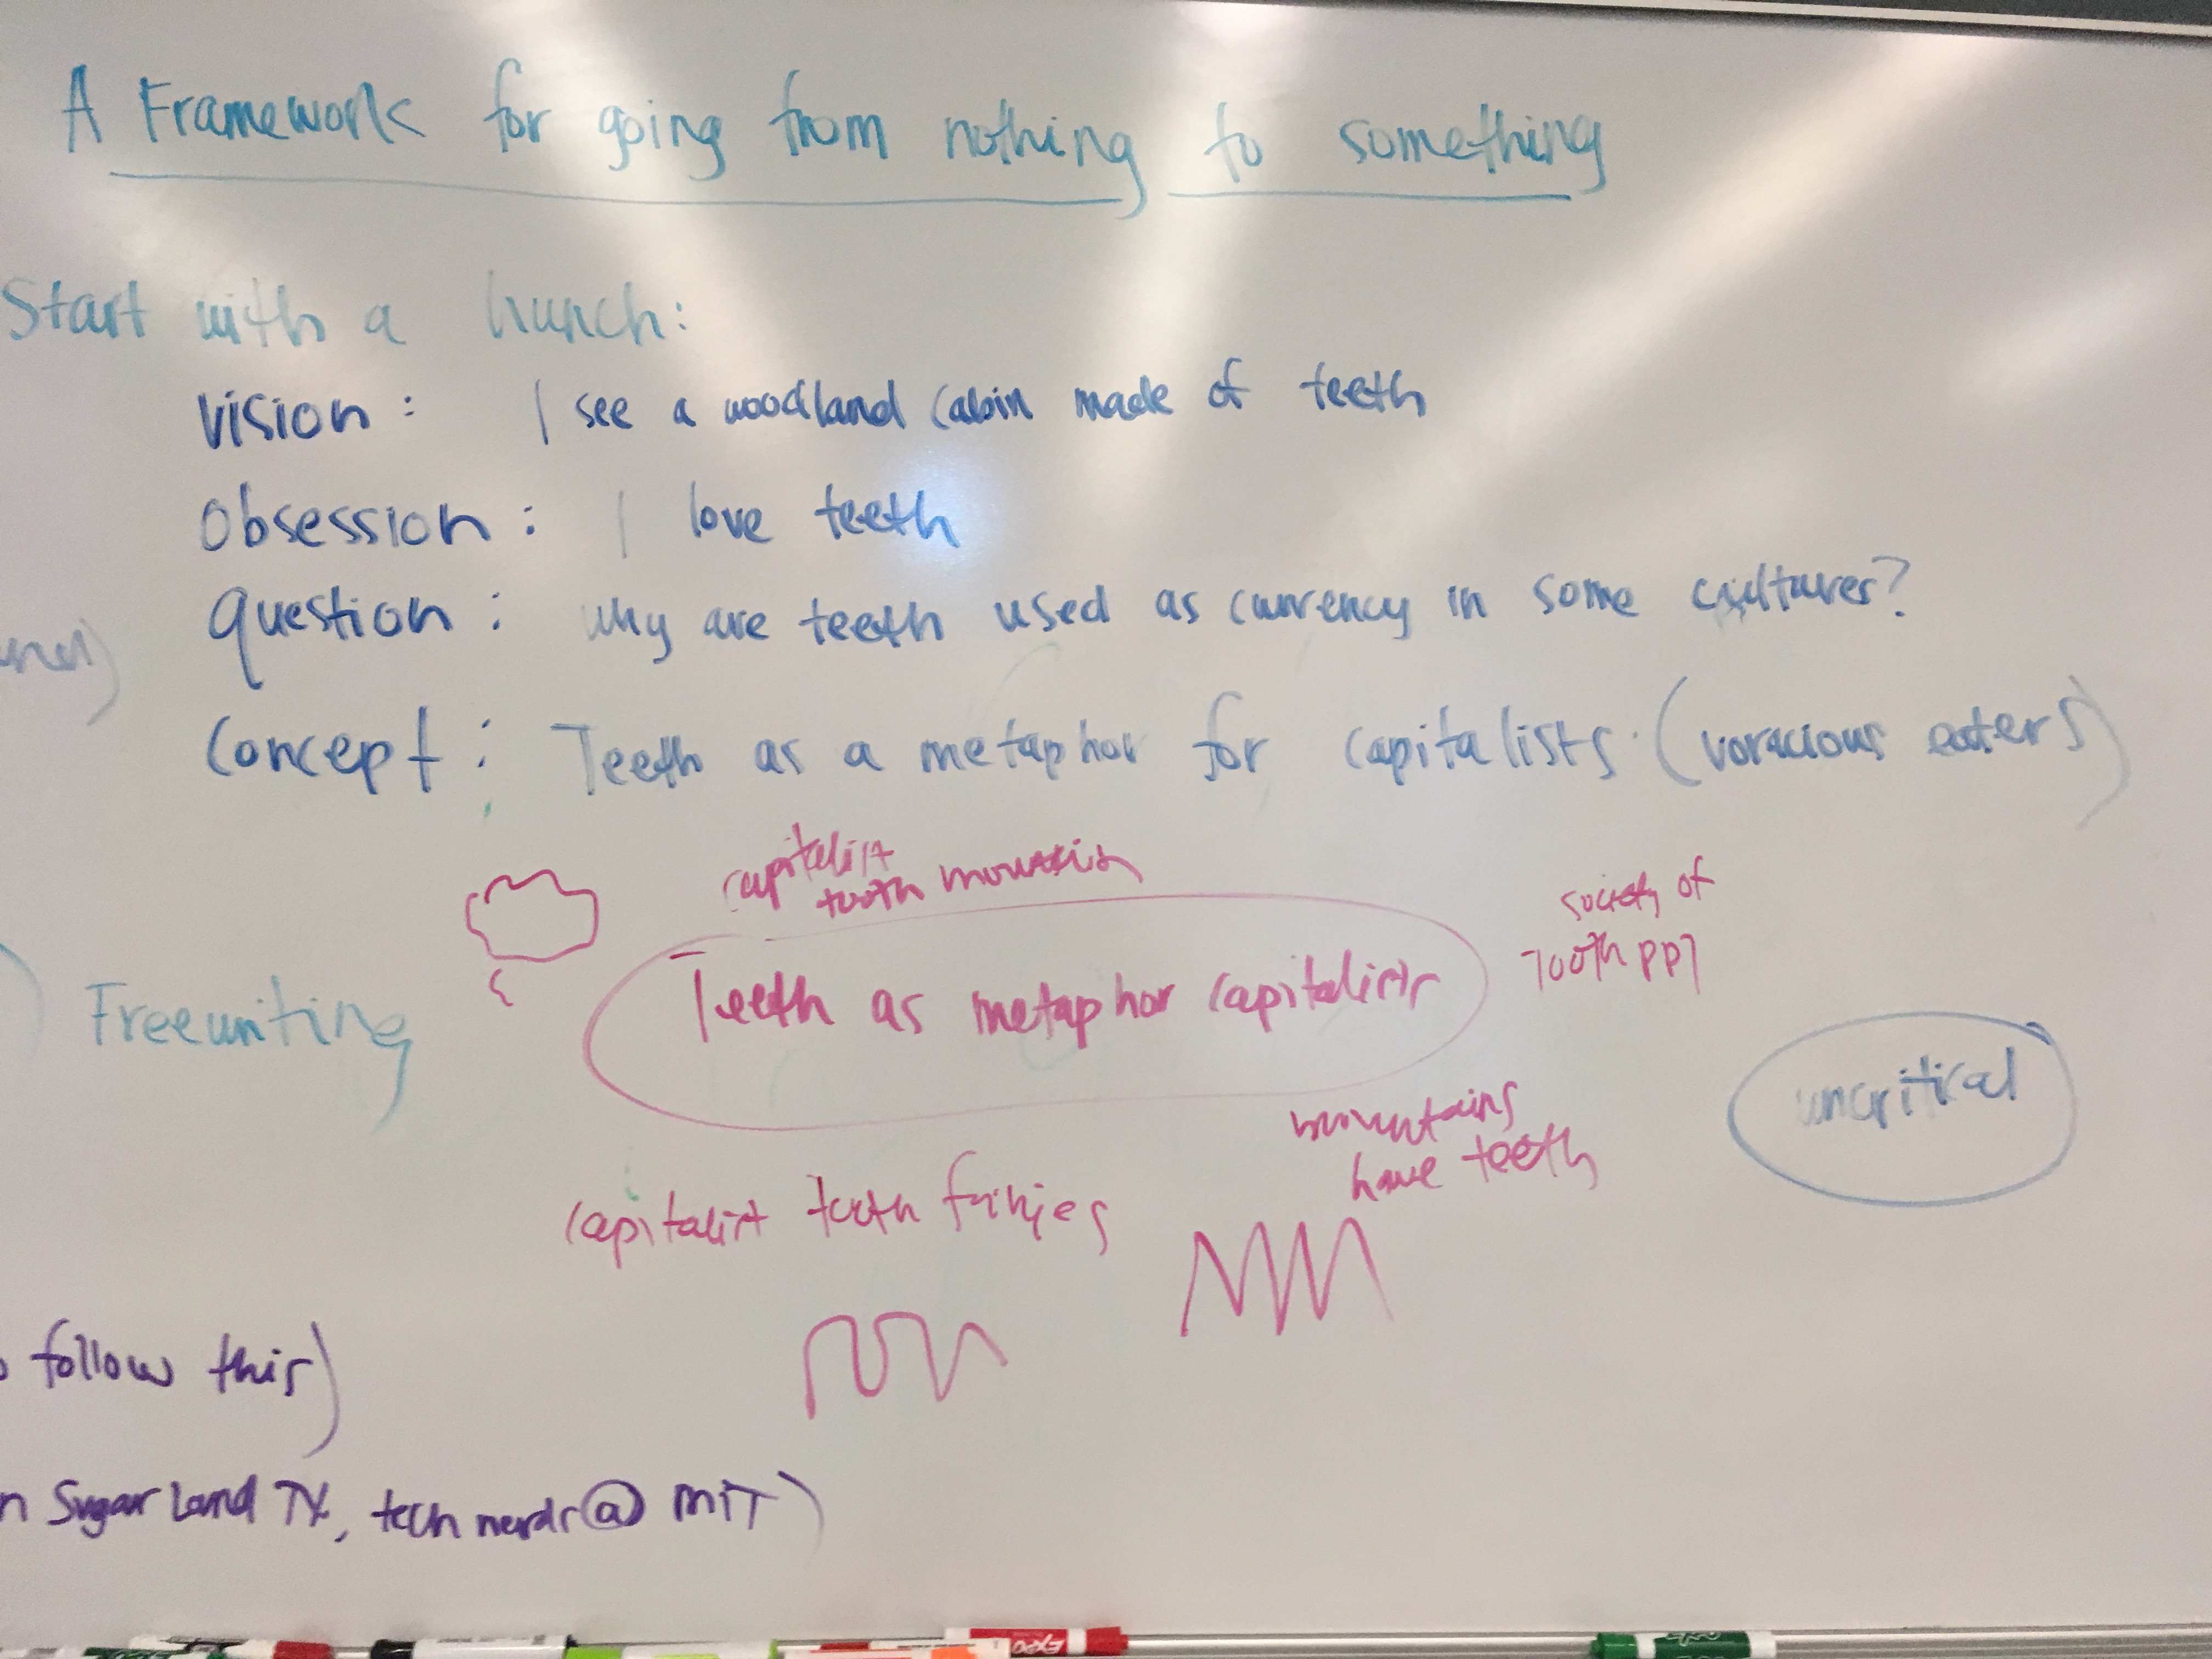 A Framework for going from nothing to something
Start with a hunch:
Vision: I see a woodland cabin made of teeth
Obsession: I love teeth
Question: why are teeth used as currency in some cultures?
Concept: Teeth as a metaphor for capitalists (voracious eaters)
capitalist
tooth mountain
society of
Tooth ppl
Freewriting
Teeth as metaphor capitalists
uncritical
mountains
have teeth
capitalist tooth fairies
follow this)
n Sugar Land TX, tech nerds @ MIT)
EXPO